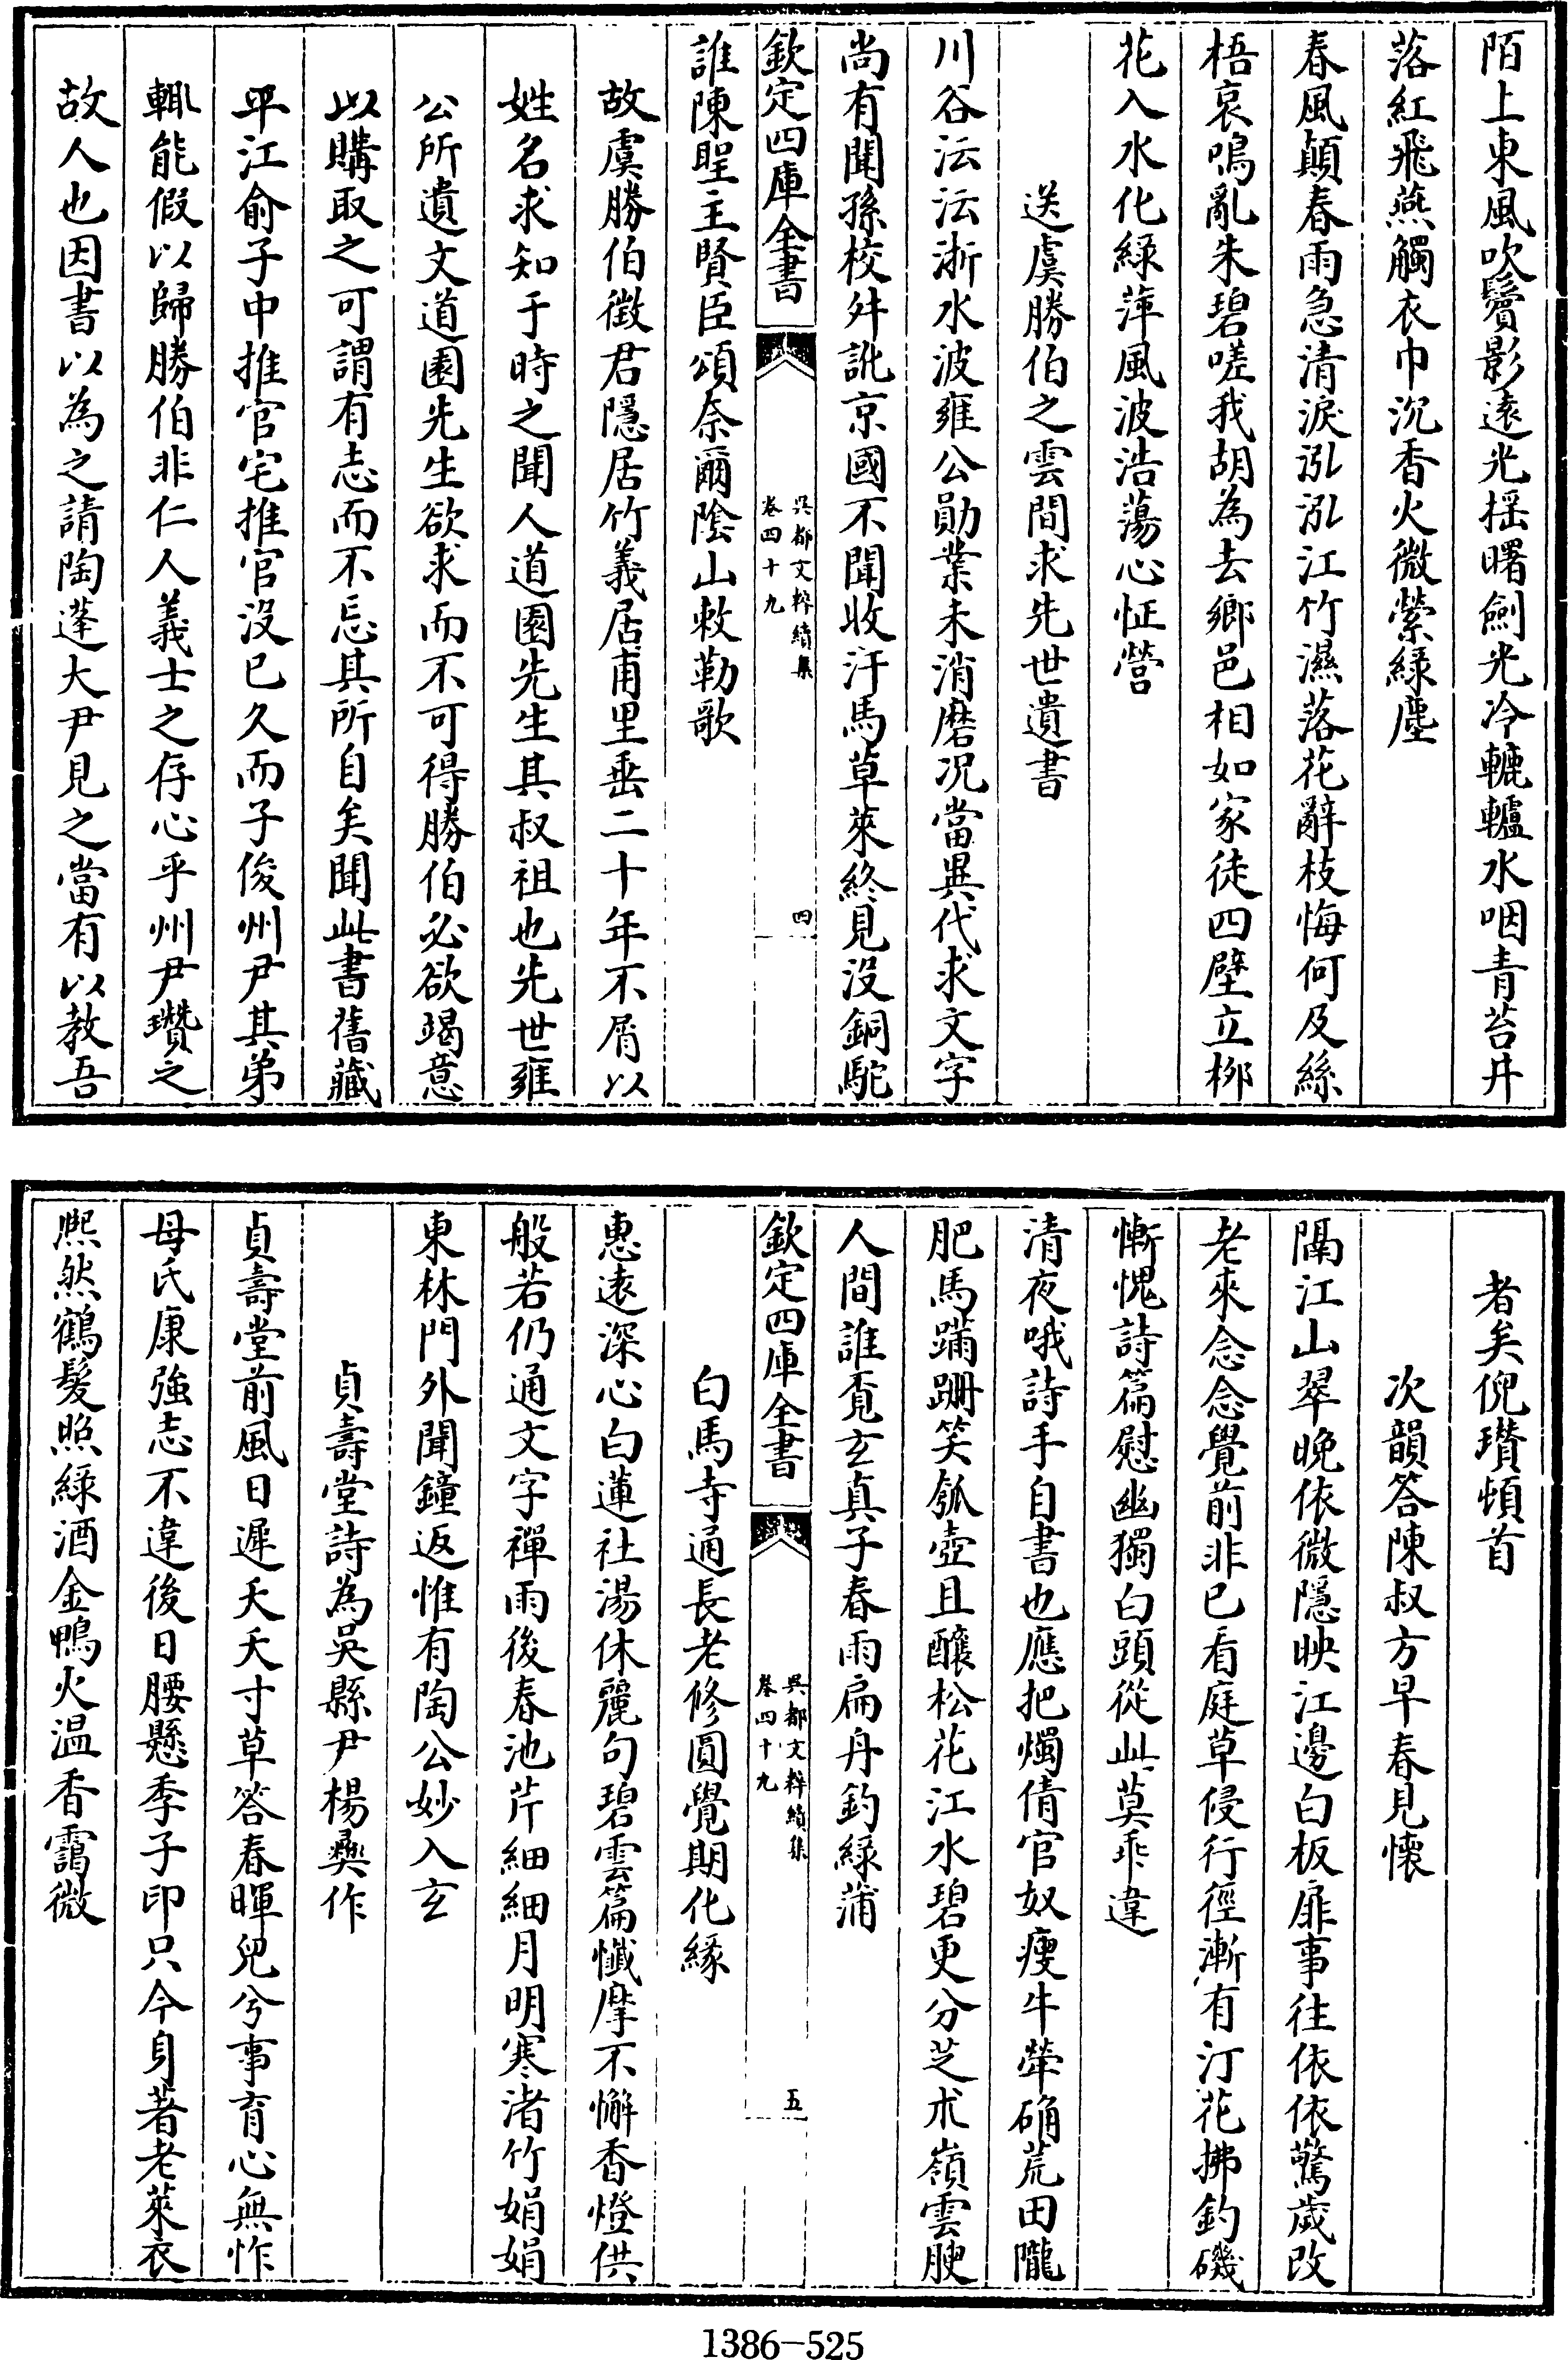 陌上東風吹鬢影遠光揺曙劍光冷轆轤水咽青苔井
落紅飛燕觸衣巾沉香火微縈緑塵
春風顛春雨急清淚泓泓江竹濕落花辭枝悔何及絲
梧哀鳴亂朱碧嗟我胡為去鄉邑相如家徒四壁立栁
花入水化緑萍風波浩蕩心怔營
送虞勝伯之雲間求先世遺書
川谷沄沄浙水波雍公勛業未消磨况當異代求文字
尚有聞孫校舛訛京國不聞收汗馬草萊終見沒銅駝
欽定四庫全書
吳都文粹續集
卷四十九
四
誰陳聖主賢臣頌奈爾陰山敕勒歌
故虞勝伯徵君隱居竹義居甫里垂二十年不屑以
姓名求知于時之聞人道園先生其叔祖也先世雍
公所遺文道園先生欲求而不可得勝伯必欲竭意
以購取之可謂有志而不忘其所自矣聞此書舊藏
平江俞子中推官宅推官沒已久而子俊州尹其弟
輒能假以歸勝伯非仁人義士之存心乎州尹瓚之
故人也因書以為之請陶蓬大尹見之當有以教吾
者矣倪瓚頓首
次韻答陳叔方早春見懷
隔江山翠晚依微隱映江邊白板扉事往依依驚歲改
老來念念覺前非已看庭草侵行徑漸有汀花拂釣磯
慚愧詩篇慰幽獨白頭從此莫乖違
清夜哦詩手自書也應把燭倩官奴瘦牛犖确荒田隴
肥馬蹣跚笑瓠壺且釀松花江水碧更分芝朮嶺雲腴
人間誰覔玄真子春雨扁舟釣緑蒲
欽定四庫全書
吳都文粹續集
卷四十九
五
白馬寺通長老修圓覺期化緣
惠遠深心白蓮社湯休麗句碧雲篇懺摩不懈香燈供
般若仍通文字禪雨後春池芹細細月明寒渚竹娟娟
東林門外聞鐘返惟有陶公妙入玄
貞壽堂詩為吳縣尹楊彜作
貞壽堂前風日遲夭夭寸草答春暉兒兮事育心無怍
母氏康強志不違後日腰懸季子印只今身著老萊衣
熈然鶴髮照緑酒金鴨火温香靄微
1386-525